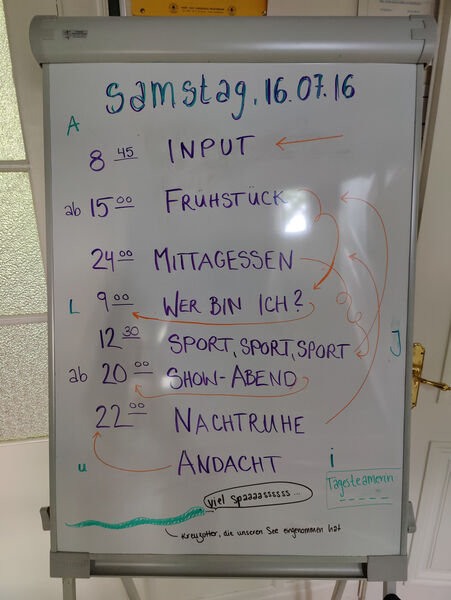 Samstag, 16.07.16
A
8 45 INPUT
ab 15 00 FRÜHSTÜCK
24 00 MITTAGESSEN
L 9 00 WER BIN ICH?
12 30 SPORT, SPORT, SPORT
J
ab 20 00 SHOW-ABEND
22 00 NACHTRUHE
ANDACHT
u
i
Tagesteamerin
viel spaaaassssss...
Kreuzotter, die unseren See eingenommen hat